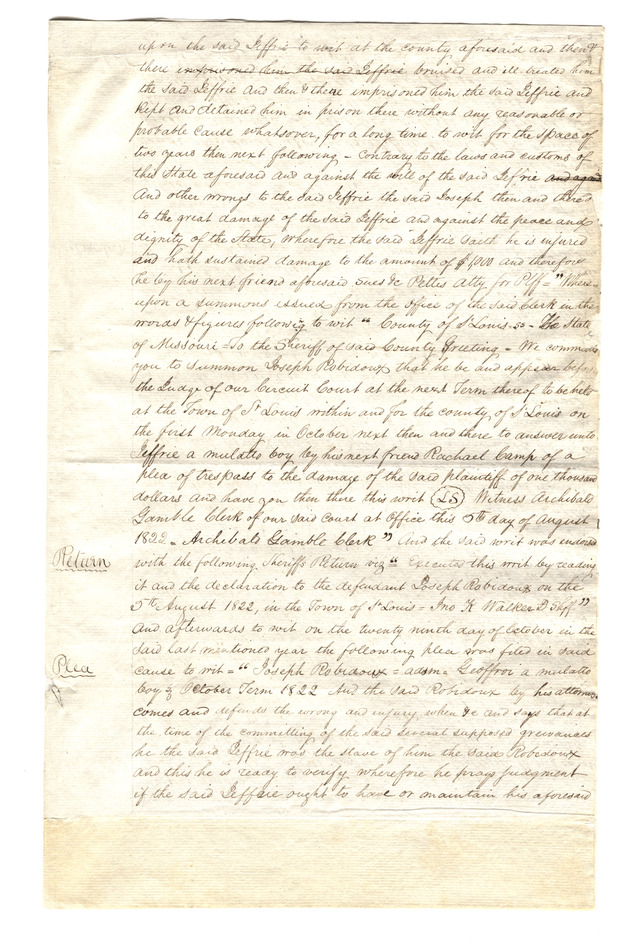 upon the said Jeffrie to wit at the county aforesaid and then &
there imprisoned him the said Jeffrie bruised and ill treated him
the said Jeffrie And then & there imprisoned him the said Jeffrie and
kept and detained him in prison there without any reasonable or
probable cause whatsover, for a long time to wit for the space of
two years then next following – contrary to the laws and customs of
this State aforesaid and against the will of the said Jeffrie and again
And other wrongs to the said Jeffrie the said Joseph then and there did
to the great damage of the said Jeffrie and against the peace and
dignity of the State, Wherefore the said Jeffrie saith he is injured
and hath sustained damage to the amount of $1,000 and therefore
he by his next friend aforesaid sues &c Pettis Atty for Plff = " Where=
upon a summons issued from the office of the said Clerk in the
words & figures following to wit " County of St Louis ss – The State
of Missouri – To the Sheriff of said County Greeting – We command
you to summon Joseph Robidoux that he be and appear before
the Judge of our Circuit Court at the next Term thereof to be held
at the Town of St Louis within and for the county of St Louis on
the first Monday in October next then and there to answer unto
Jeffrie a mulatto boy by his next friend Rachael Camp of a
plea of trespass to the damage of the said plaintiff of one thousand
dollars and have you then there this writ (LS) Witness Archibald
Gamble Clerk of our said Court at Office this 5th day of August
1822 – Archibald Gamble Clerk " And the said writ was endorsed
Return
with the following Sheriffs Return viz " Executed this writ by reading
it and the declaration to the defendant Joseph Robidoux on the
5th August 1822, in the Town of St Louis – Jno K Walker D. Shff "
And afterwards to wit on the twenty ninth day of October in the
said last mentioned year the following plea was filed in said
Plea
cause to wit – " Joseph Robidoux – adsm – Geoffroi a mulatto
boy } October Term 1822 And the said Robidoux by his attorney
comes and defends the wrong and injury when &c and says that at
the time of the committing of the said several supposed grievances
he the said Jeffrie was the slave of him the said Robidoux
and this he is ready to verify wherefore he prays judgment
if the said Jeffrie ought to have or maintain his aforesaid